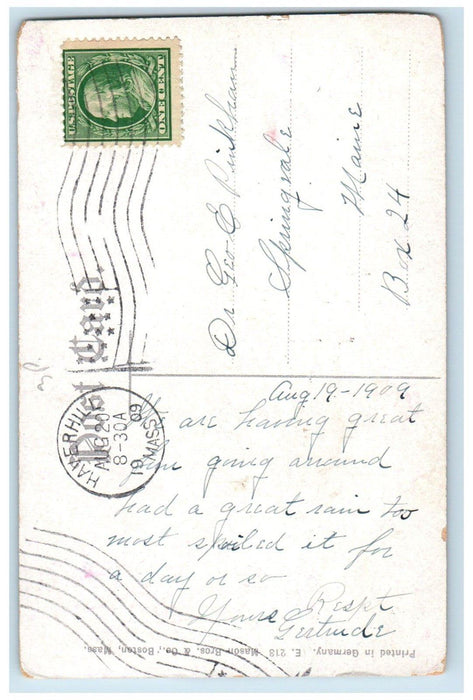 U.S. POSTAGE
ONE CENT
Post Card.
HAVERHILL
AUG 20
8-30A
19 09
MASS.
Dr Geo E Pinkham
Springvale
Maine
Box 24
Aug 19-1909
We are having great
fun going around
had a great rain too
most spoiled it for
a day or so
Yours Respt
Gertrude
Printed in Germany. E. 213 Mason Bros. & Co., Boston, Mass.